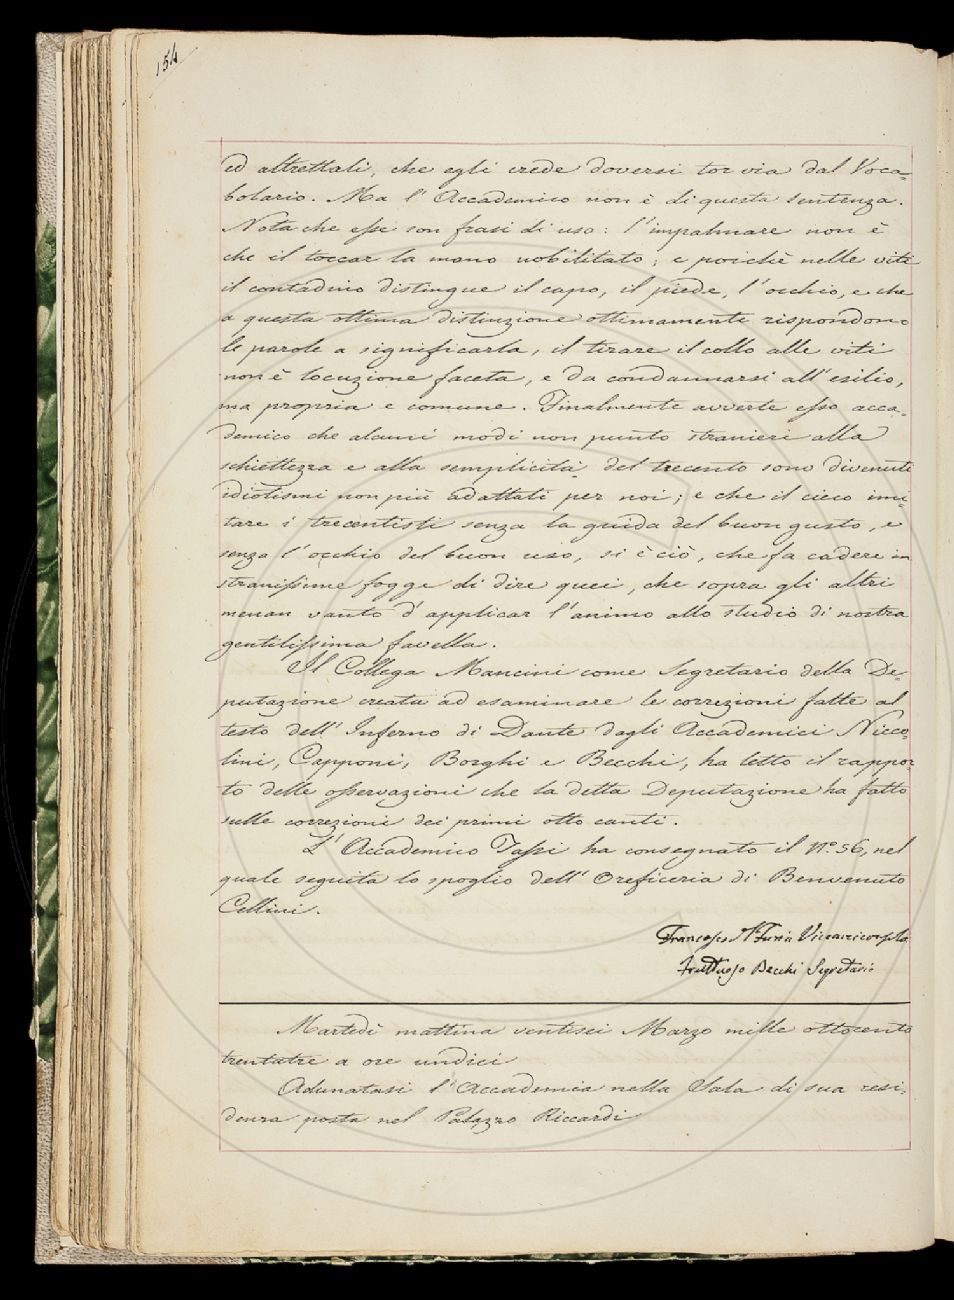 154
ed altrettali, che egli crede doversi tor via dal Voca-
bolario. Ma l'Accademico non è di questa sentenza.
Nota che esse son frasi di uso: l'impalmare non è
che il toccar la mano nobilitato; e poichè nelle viti
il contadino distingue il capo, il piede, l'occhio, e che
a questa ottima distinzione ottimamente rispondono
le parole a significarla, il tirare il collo alle viti
non è locuzione faceta, e da condannarsi all'esilio,
ma propria e comune. Finalmente avverte esso acca-
demico che alcuni modi non punto stranieri alla
schiettezza e alla semplicità del trecento sono divenuti
idiotismi non più adattati per noi; e che il cieco imi-
tare i trecentisti senza la guida del buon gusto, e
senza l'occhio del buon uso, si è ciò, che fa cadere in
stranissime fogge di dire quei, che sopra gli altri
menan vanto d'applicar l'animo allo studio di nostra
gentilissima favella.
Il Collega Mancini come Segretario della De-
putazione creata ad esaminare le correzioni fatte al
testo dell'Inferno di Dante dagli Accademici Nicco-
lini, Capponi, Borghi e Becchi, ha letto il rappor-
to delle osservazioni che la detta Deputazione ha fatto
sulle correzioni dei primi otto canti.
L'Accademico Tassi ha consegnato il N.o 56, nel
quale seguita lo spoglio dell'Oreficeria di Benvenuto
Cellini.
Francesco Furia Viceariconsolo
Fruttuoso Becchi Segretario
Martedì mattina ventisei Marzo mille ottocento
trentatre a ore undici
Adunatasi l'Accademia nella Sala di sua resi-
denza posta nel Palazzo Riccardi